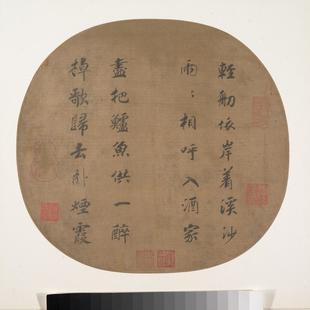 輕舠依岸著溪沙
兩〻相呼入酒家
盡把鱸魚供一醉
棹歌歸去卧煙霞